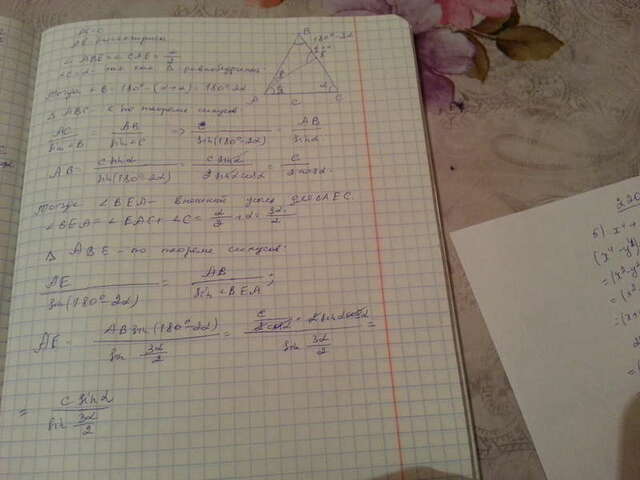 AC=C
AE-биссектриса
∠ABE=∠CAE=α/2
∠C=α так как Δ-равнобедрен
Тогда ∠B=180°-(α+α)=180°-2α
B
180°-2α
A
C
C
Δ ABC по теореме синусов
AC/sin∠B = AB/sin∠C => c/sin(180°-2α) = AB/sinα
AB= c sinα/sin(180°-2α) = c sinα/2 sinα cosα = c/2 cosα
Тогда ∠BEA- внешний угол для ΔAEC.
∠BEA=∠EAC+∠C= α/2 +α= 3α/2
Δ ABE-по теореме синусов:
AE/sin(180°-2α) = AB/sin∠BEA;
AE= AB sin(180°-2α)/sin 3α/2 = c/2cosα · 2sinαcosα/sin 3α/2 =
= c sinα/sin 3α/2